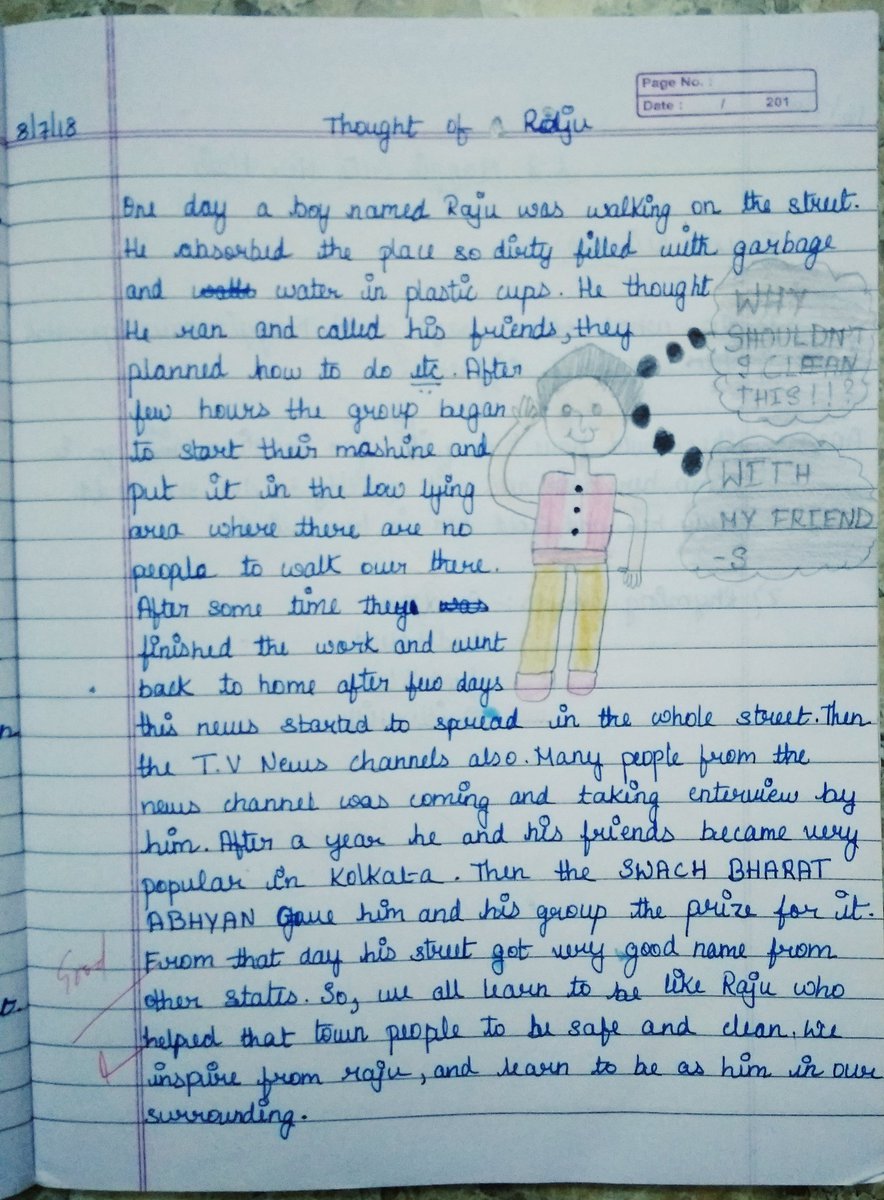 Page No. :
Date : / 201
8/7/18
Thought of Raju
One day a boy named Raju was walking on the street.
He absorbed the place so dirty filled with garbage
and water in plastic cups. He thought
WHY
SHOULDN'T
I CLEAN
THIS!!?
WITH
MY FRIEND
-S
He ran and called his friends, they
planned how to do etc. After
few hours the group began
to start their mashine and
put it in the low lying
area where there are no
people to walk over there.
After some time they
finished the work and went
back to home after few days
this news started to spread in the whole street. Then
the T.V News channels also. Many people from the
news channel was coming and taking enterview by
him. After a year he and his friends became very
popular in Kolkata. Then the SWACH BHARAT
ABHYAN Gave him and his group the prize for it.
From that day his street got very good name from
other states. So, we all learn to be like Raju who
helped that town people to be safe and clean. We
inspire from raju, and learn to be as him in our
surrounding.
Good